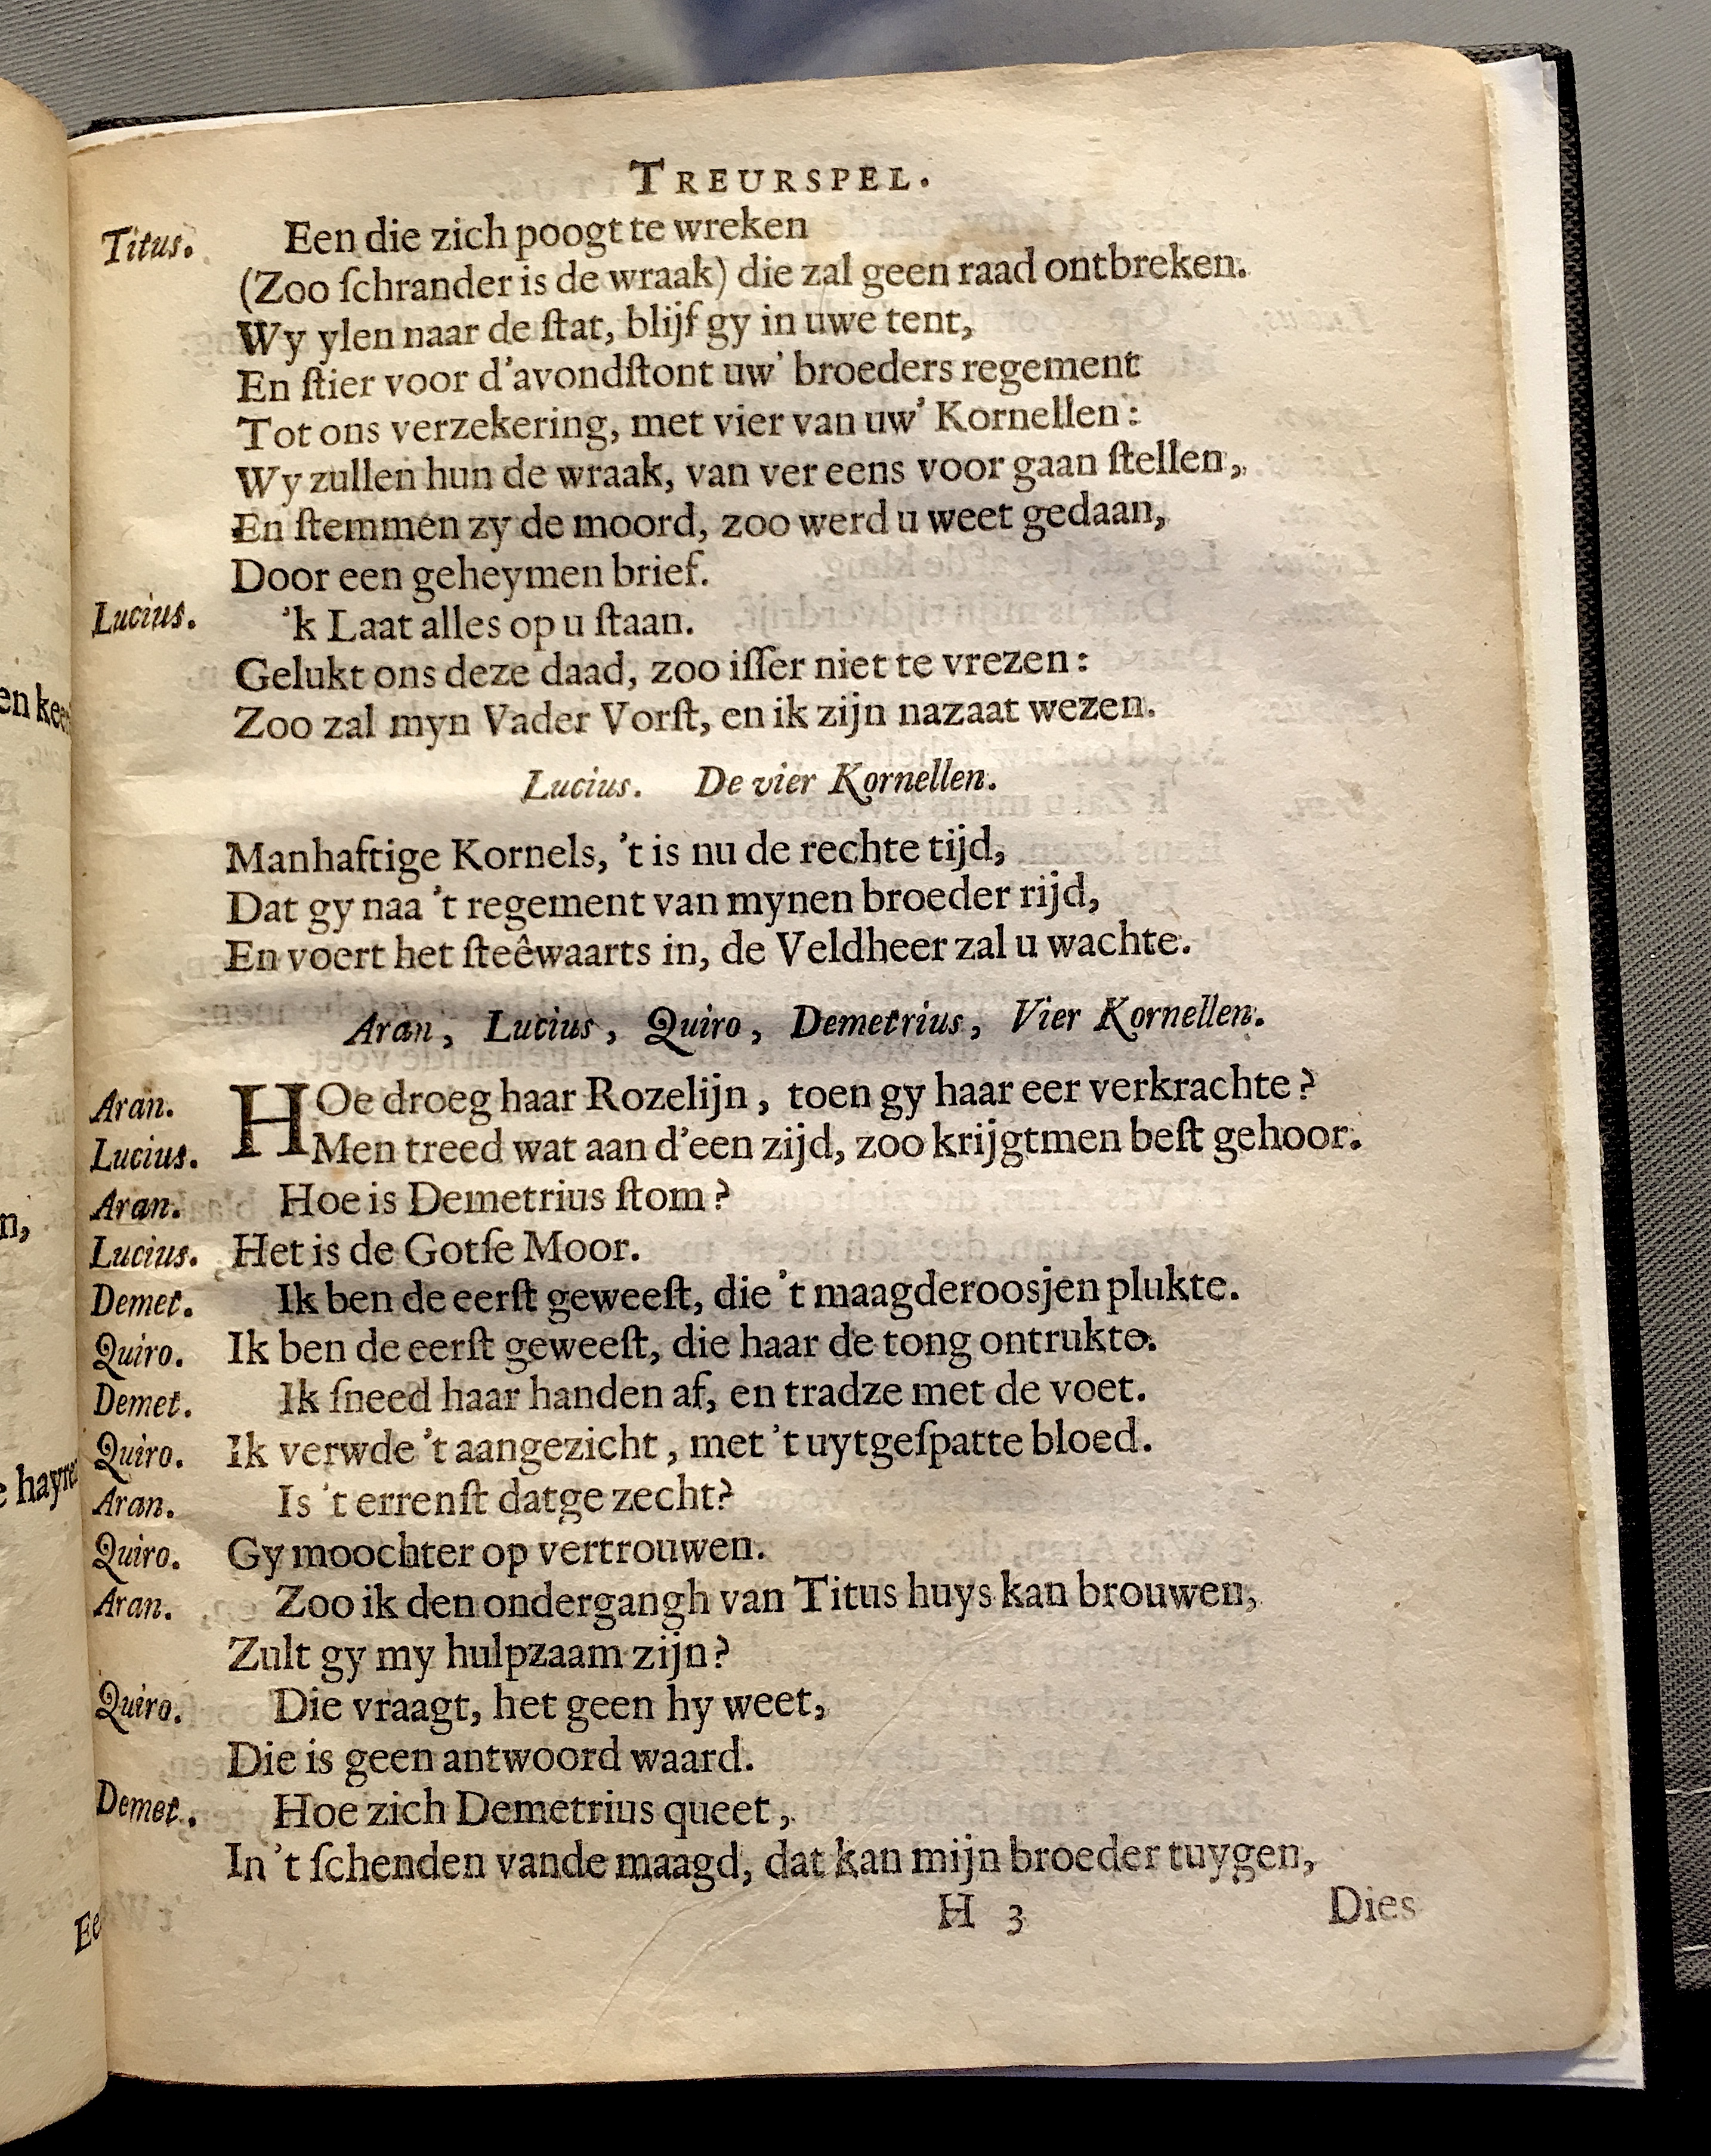 TREURSPEL.
Titus. Een die zich poogt te wreken
(Zoo ſchrander is de wraak) die zal geen raad ontbreken.
Wy ylen naar de ſtat, blijf gy in uwe tent,
En ſtier voor d'avondſtont uw' broeders regement
Tot ons verzekering, met vier van uw' Kornellen:
Wy zullen hun de wraak, van ver eens voor gaan ſtellen,
En ſtemmen zy de moord, zoo werd u weet gedaan,
Door een geheymen brief.
Lucius. 'k Laat alles op u ſtaan.
Gelukt ons deze daad, zoo iſſer niet te vrezen:
Zoo zal myn Vader Vorſt, en ik zijn nazaat wezen.
Lucius. De vier Kornellen.
Manhaftige Kornels, 't is nu de rechte tijd,
Dat gy naa 't regement van mynen broeder rijd,
En voert het ſteêwaarts in, de Veldheer zal u wachte.
Aran, Lucius, Quiro, Demetrius, Vier Kornellen.
Aran. HOe droeg haar Rozelijn, toen gy haar eer verkrachte?
Lucius. Men treed wat aan d'een zijd, zoo krijgtmen beſt gehoor.
Aran. Hoe is Demetrius ſtom?
Lucius. Het is de Gotſe Moor.
Demet. Ik ben de eerſt geweeſt, die 't maagderoosjen plukte.
Quiro. Ik ben de eerſt geweeſt, die haar de tong ontrukte.
Demet. Ik ſneed haar handen af, en tradze met de voet.
Quiro. Ik verwde 't aangezicht, met 't uytgeſpatte bloed.
Aran. Is 't errenſt datge zecht?
Quiro. Gy moochter op vertrouwen.
Aran. Zoo ik den ondergangh van Titus huys kan brouwen,
Zult gy my hulpzaam zijn?
Quiro. Die vraagt, het geen hy weet,
Die is geen antwoord waard.
Demet. Hoe zich Demetrius queet,
In 't ſchenden vande maagd, dat kan mijn broeder tuygen,
H 3 Dies